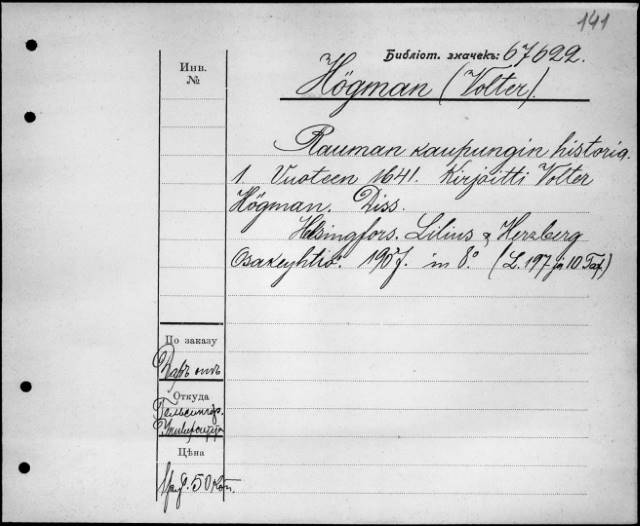 141
Библіот. значекъ: 67622.
Инв.
№
Högman (Volter).
Rauman kaupungin historia.
1. Vuoteen 1641. Kirjoitti Volter
Högman. Diss.
Helsingfors. Lilius & Herzberg
Osakeyhtiö. 1907. in 8°. (L. 197 ja 10 Taf.)
По заказу
Даръ отъ
Откуда
Гельсингф.
Университ.
Цѣна
1 руб. 50 коп.